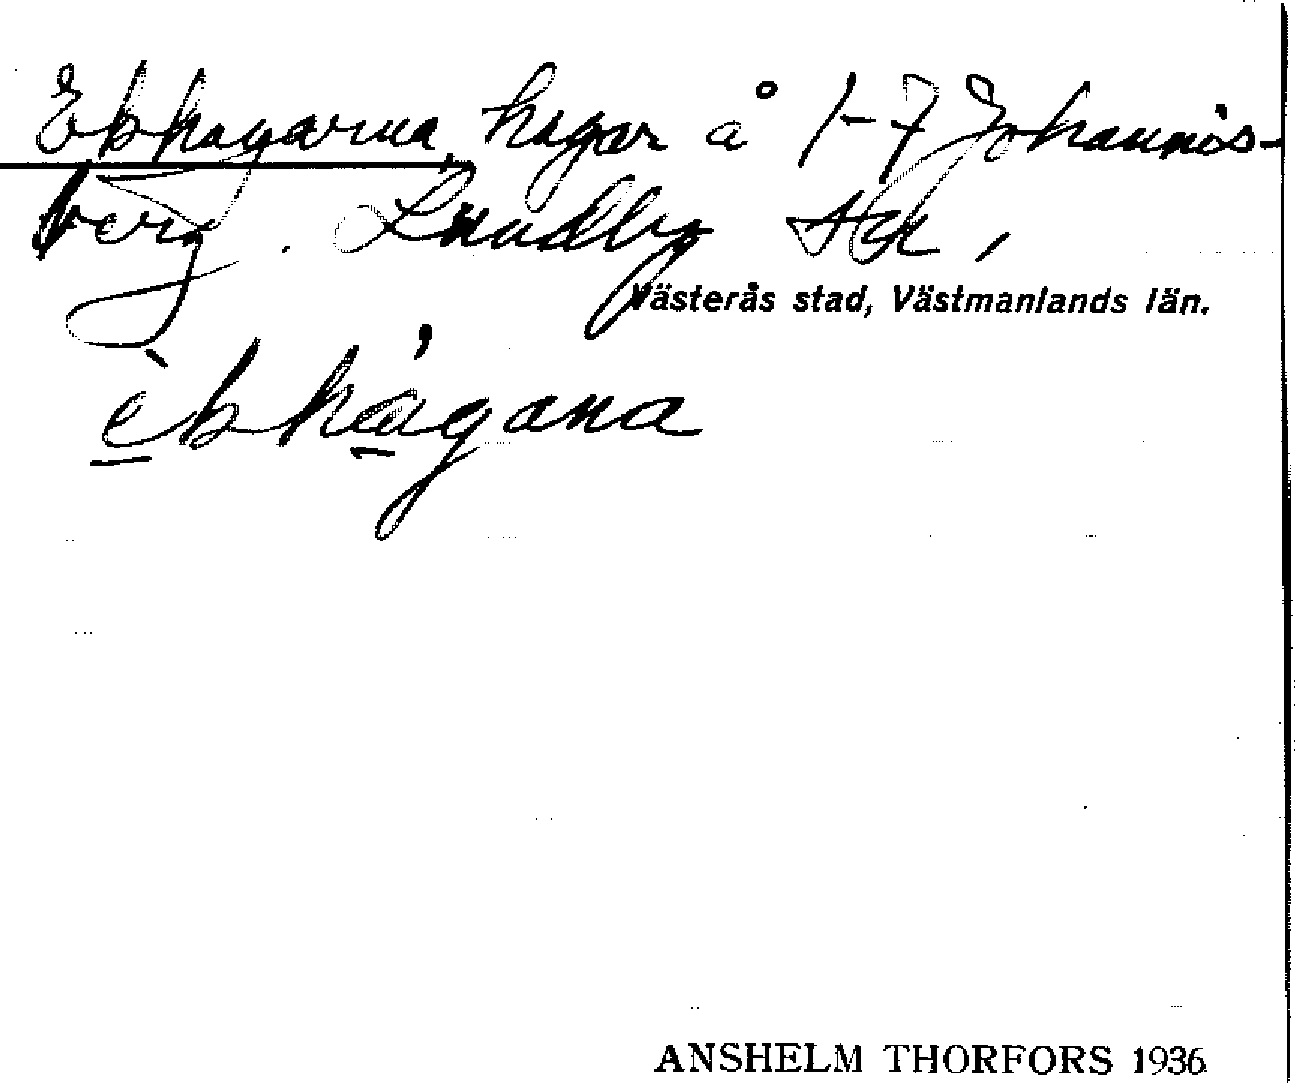 Ebbhagarna, hagar å 1-7 Johannis-
berg. Lundby sk,
Västerås stad, Västmanlands län.
èbhágana
ANSHELM THORFORS 1936